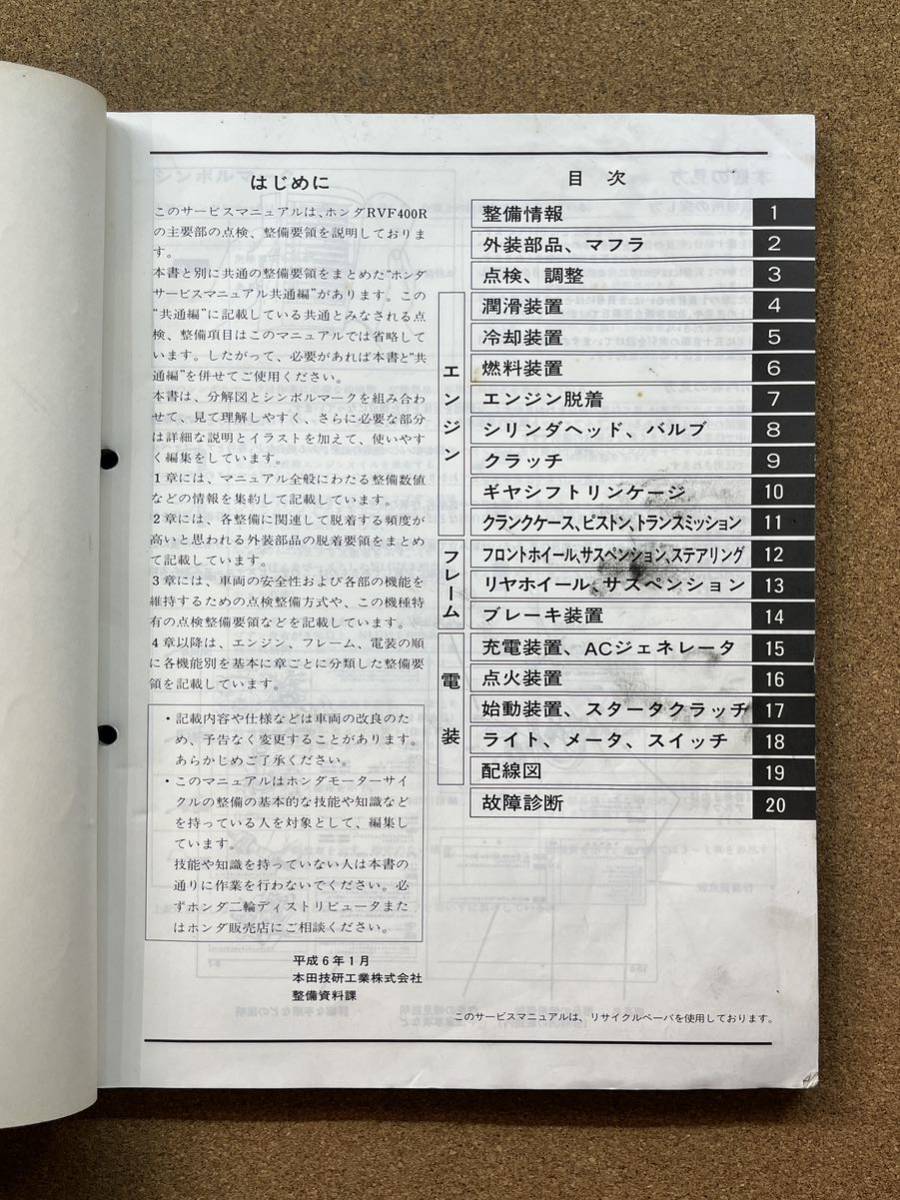 はじめに
このサービスマニュアルは、ホンダRVF400R
の主要部の点検、整備要領を説明しておりま
す。
本書と別に共通の整備要領をまとめた"ホンダ
サービスマニュアル共通編"があります。この
"共通編"に記載している共通とみなされる点
検、整備項目はこのマニュアルでは省略して
います。したがって、必要があれば本書と"共
通編"を併せてご使用ください。
本書は、分解図とシンボルマークを組み合わ
せて、見て理解しやすく、さらに必要な部分
は詳細な説明とイラストを加えて、使いやす
く編集をしています。
1章には、マニュアル全般にわたる整備数値
などの情報を集約して記載しています。
2章には、各整備に関連して脱着する頻度が
高いと思われる外装部品の脱着要領をまとめ
て記載しています。
3章には、車両の安全性および各部の機能を
維持するための点検整備方式や、この機種特
有の点検整備要領などを記載しています。
4章以降は、エンジン、フレーム、電装の順
に各機能別を基本に章ごとに分類した整備要
領を記載しています。
・記載内容や仕様などは車両の改良のた
め、予告なく変更することがあります。
あらかじめご了承ください。
・このマニュアルはホンダモーターサイ
クルの整備の基本的な技能や知識など
を持っている人を対象として、編集し
ています。
技能や知識を持っていない人は本書の
通りに作業を行わないでください。必
ずホンダ二輪ディストリビュータまた
はホンダ販売店にご相談ください。
平成6年1月
本田技研工業株式会社
整備資料課
目次
整備情報 1
外装部品、マフラ 2
点検、調整 3
エンジン
潤滑装置 4
冷却装置 5
燃料装置 6
エンジン脱着 7
シリンダヘッド、バルブ 8
クラッチ 9
ギヤシフトリンケージ 10
クランクケース、ピストン、トランスミッション 11
フレーム
フロントホイール、サスペンション、ステアリング 12
リヤホイール、サスペンション 13
ブレーキ装置 14
電装
充電装置、ACジェネレータ 15
点火装置 16
始動装置、スタータクラッチ 17
ライト、メータ、スイッチ 18
配線図 19
故障診断 20
このサービスマニュアルは、リサイクルペーパを使用しております。